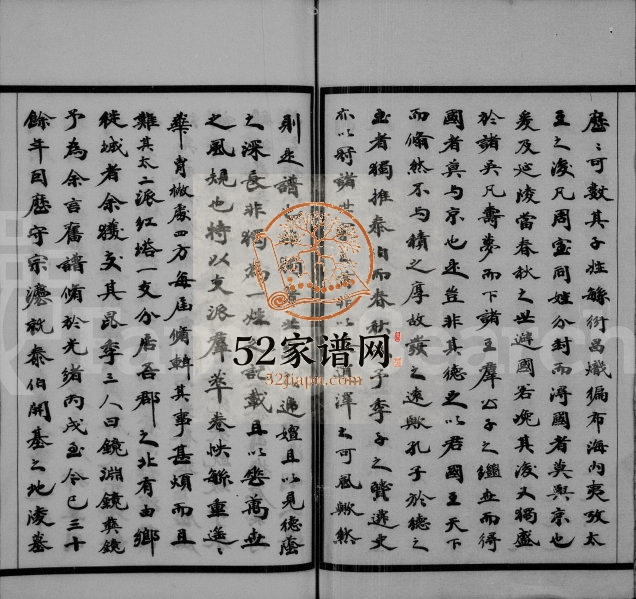 歷〻可數其子姓緜衍昌熾徧布海内夷攷太
王之後凡周室同姓分封而得國者莫與京也
爰及延陵當春秋之世避國若浼其後又獨盛
於諸吳凡壽夢而下諸王羣公子之繼世而得
國者莫与京也是豈非其德之以君國王天下
而翛然不与積之厚故發之遠歟孔子於德之
至者獨推泰伯而春秋 子季子之賢遷史
亦以 諸世 澤之可風歟然
則是譜也 遞嬗且以見德蔭
之深長非獨為一姓記載且以垂萬世
之風規也特以支派羣萃卷帙緐重遙〻
華胄散處四方每屆脩輯其事甚煩而且
難其太二派紅塔一支分居吾郡之北有由鄉
徙城者余獲交其昆季三人曰鏡淵鏡 鏡
予為余言舊譜脩於光緒丙戌至今已三十
餘年因歷守宗 就泰伯開基之地陵墓
52家谱网
52jiapu.com